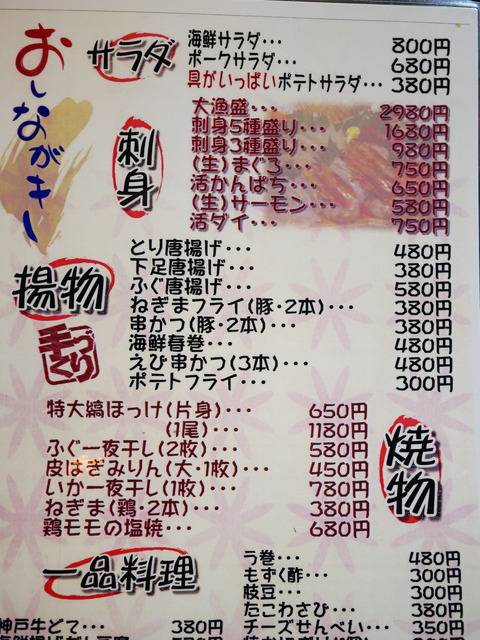 おしながき
サラダ
海鮮サラダ・・・ 800円
ポークサラダ・・・ 680円
具がいっぱいポテトサラダ・・・ 380円
刺身
大漁盛・・・ 2980円
刺身5種盛り・・・ 1680円
刺身3種盛り・・・ 980円
(生)まぐろ・・・ 750円
活かんぱち・・・ 650円
(生)サーモン・・・ 580円
活ダイ・・・ 750円
揚物
手づくり
とり唐揚げ・・・ 480円
下足唐揚げ・・・ 380円
ふぐ唐揚げ・・・ 580円
ねぎまフライ(豚・2本)・・・ 380円
串かつ(豚・2本)・・・ 380円
海鮮春巻・・・ 480円
えび串かつ(3本)・・・ 480円
ポテトフライ・・・ 300円
焼物
特大縞ほっけ(片身)・・・ 650円
(1尾)・・・ 1180円
ふぐ一夜干し(2枚)・・・ 580円
皮はぎみりん(大・1枚)・・・ 450円
いか一夜干し(1枚)・・・ 780円
ねぎま(鶏・2本)・・・ 380円
鶏モモの塩焼・・・ 680円
一品料理
う巻・・・ 480円
もずく酢・・・ 300円
枝豆・・・ 300円
たこわさび・・・ 380円
チーズせんべい・・・ 350円
神戸牛どて・・・ 380円